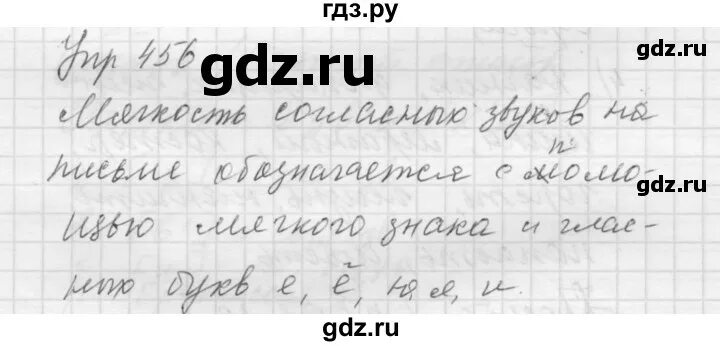 гдз.ру
gdz.ru
Упр 456
gdz.ru
Мягкость согласных звуков на
письме обозначается с помо-
щью мягкого знака и глас-
ных букв е, ё, ю я, и.
gdz.ru
gdz.ru